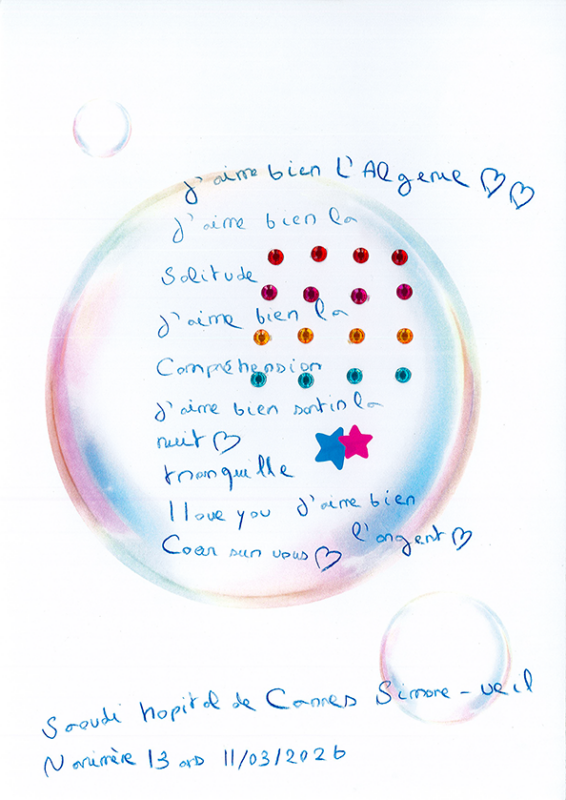 J'aime bien L'Algerie
J'aime bien la
Solitude
J'aime bien la
Compréhension
J'aime bien sortir la
nuit
tranquille
I love you J'aime bien
Coeur sur vous l'argent
Saoudi hopital de Cannes Simone-veil
13 ans 11/03/2026